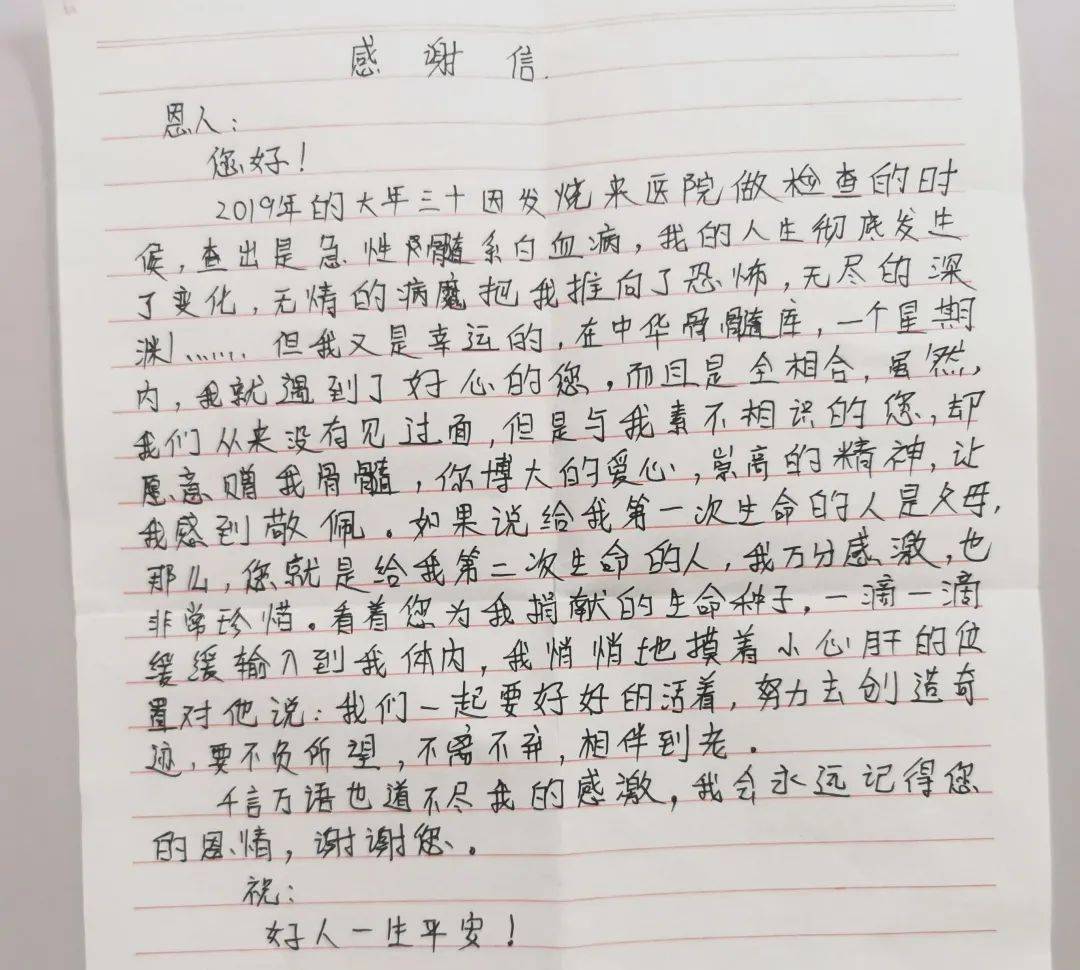 感谢信.
恩人：
您好！
2019年的大年三十因发烧来医院做检查的时
候，查出是急性髓系白血病，我的人生彻底发生
了变化，无情的病魔把我推向了恐怖，无尽的深
渊……但我又是幸运的，在中华骨髓库，一个星期
内，我就遇到了好心的您，而且是全相合，虽然，
我们从来没有见过面，但是与我素不相识的您，却
愿意赠我骨髓，你博大的爱心，崇高的精神，让
我感到敬佩。如果说给我第一次生命的人是父母，
那么，您就是给我第二次生命的人，我万分感激，也
非常珍惜。看着您为我捐献的生命种子，一滴一滴
缓缓输入到我体内，我悄悄地摸着小心肝的位
置对他说：我们一起要好好的活着，努力去创造奇
迹，要不负所望，不离不弃，相伴到老。
千言万语也道不尽我的感激，我会永远记得您
的恩情，谢谢您。
祝：
好人一生平安！